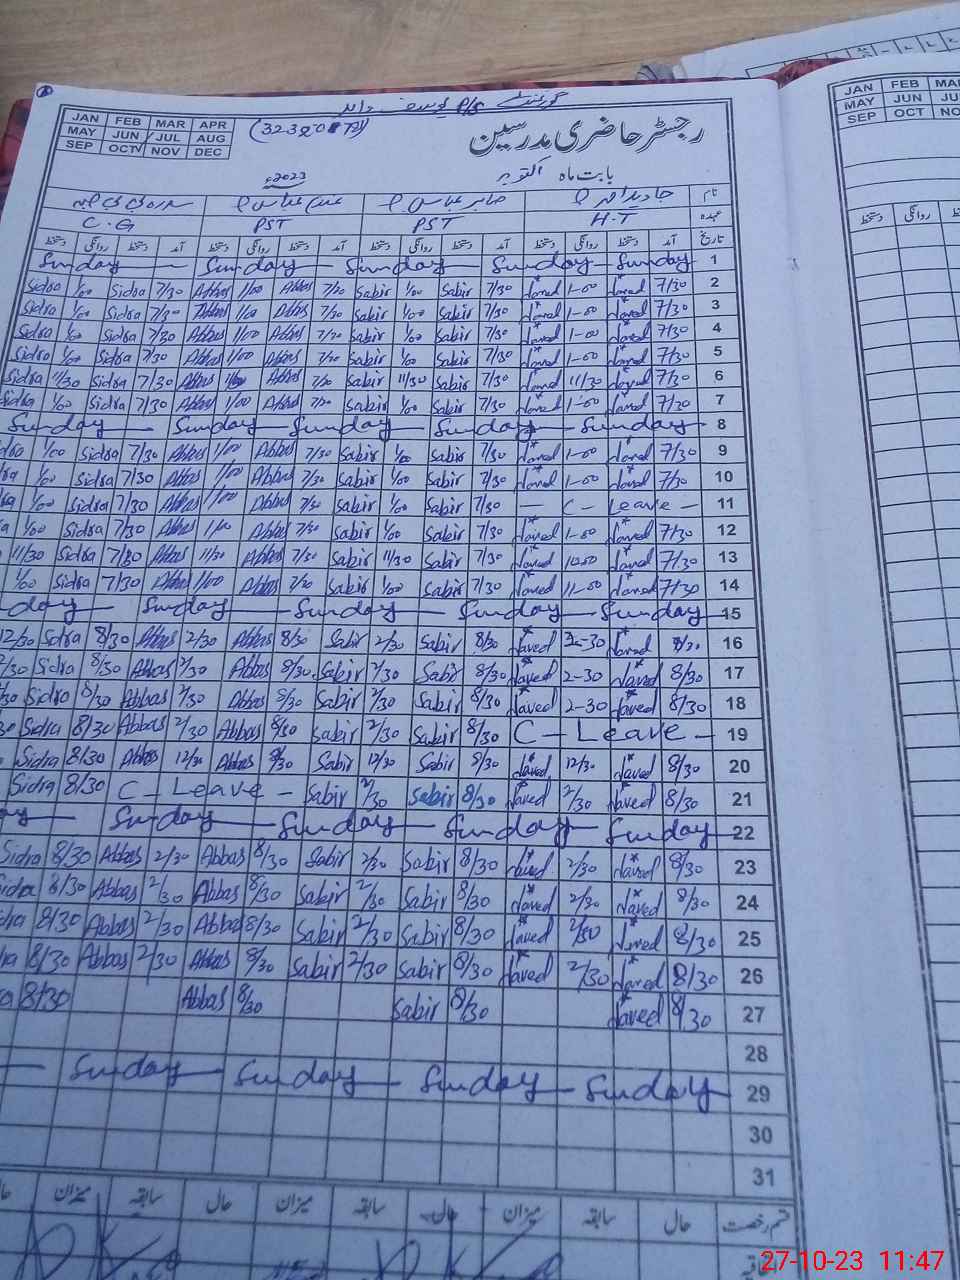 JAN FEB MAR APR
MAY JUN JUL AUG
SEP OCT NOV DEC
رجسٹر حاضری مدرسین
بابت ماہ اکتوبر 2023ء
نام جاوید صابر عباس عباس
عہدہ H.T PST PST C.G
تاریخ آمد دستخط روانگی دستخط آمد دستخط روانگی دستخط آمد دستخط روانگی دستخط آمد دستخط روانگی دستخط
Sunday Sunday Sunday Sunday Sunday 1
Sidra 1/00 Sidra 7/30 Abbas 1/00 Abbas 7/30 Sabir 1/00 Sabir 7/30 Javed 1-00 Javed 7/30 2
Sidra 1/00 Sidra 7/30 Abbas 1/00 Abbas 7/30 Sabir 1/00 Sabir 7/30 Javed 1-00 Javed 7/30 3
Sidra 1/00 Sidra 7/30 Abbas 1/00 Abbas 7/30 Sabir 1/00 Sabir 7/30 Javed 1-00 Javed 7/30 4
Sidra 1/00 Sidra 7/30 Abbas 1/00 Abbas 7/30 Sabir 1/00 Sabir 7/30 Javed 1-00 Javed 7/30 5
Sidra 11/30 Sidra 7/30 Abbas Abbas 7/30 Sabir 11/30 Sabir 7/30 Javed 11/30 Javed 7/30 6
Sidra 1/00 Sidra 7/30 Abbas 1/00 Abbas 7/30 Sabir 1/00 Sabir 7/30 Javed 1-00 Javed 7/30 7
Sunday Sunday Sunday Sunday Sunday 8
1/00 Sidra 7/30 Abbas 1/00 Abbas 7/30 Sabir 1/00 Sabir 7/30 Javed 1-00 Javed 7/30 9
1/00 Sidra 7/30 Abbas 1/00 Abbas 7/30 Sabir 1/00 Sabir 7/30 Javed 1-00 Javed 7/30 10
1/00 Sidra 7/30 Abbas 1/00 Abbas 7/30 Sabir 1/00 Sabir 7/30 — C - Leave - 11
1/00 Sidra 7/30 Abbas 1/00 Abbas 7/30 Sabir 1/00 Sabir 7/30 Javed 1-00 Javed 7/30 12
11/30 Sidra 7/30 Abbas 11/30 Abbas 7/30 Sabir 11/30 Sabir 7/30 Javed Javed 7/30 13
1/00 Sidra 7/30 Abbas 1/00 Abbas 7/30 Sabir 1/00 Sabir 7/30 Javed 11-00 Javed 7/30 14
day Sunday Sunday Sunday Sunday 15
12/30 Sidra 8/30 Abbas 2/30 Abbas 8/30 Sabir 2/30 Sabir 8/30 Javed 2-30 Javed 8/30 16
Sidra 8/30 Abbas 2/30 Abbas 8/30 Sabir 2/30 Sabir 8/30 Javed 2-30 Javed 8/30 17
Sidra 8/30 Abbas 2/30 Abbas 8/30 Sabir 2/30 Sabir 8/30 Javed 2-30 Javed 8/30 18
Sidra 8/30 Abbas 2/30 Abbas 8/30 Sabir 2/30 Sabir 8/30 C - Leave - 19
Sidra 8/30 Abbas 12/30 Abbas 8/30 Sabir 12/30 Sabir 8/30 Javed 12/30 Javed 8/30 20
Sidra 8/30 C - Leave - Sabir 2/30 Sabir 8/30 Javed 2/30 Javed 8/30 21
Sunday Sunday Sunday Sunday 22
Sidra 8/30 Abbas 2/30 Abbas 8/30 Sabir 2/30 Sabir 8/30 Javed 2/30 Javed 8/30 23
Sidra 8/30 Abbas 2/30 Abbas 8/30 Sabir 2/30 Sabir 8/30 Javed 2/30 Javed 8/30 24
8/30 Abbas 2/30 Abbas 8/30 Sabir 2/30 Sabir 8/30 Javed 2/30 Javed 8/30 25
8/30 Abbas 2/30 Abbas 8/30 Sabir 2/30 Sabir 8/30 Javed 2/30 Javed 8/30 26
8/30 Abbas 8/30 Sabir 8/30 Javed 8/30 27
28
Sunday Sunday Sunday Sunday 29
30
31
قسم رخصت حال سابقہ میزان حال سابقہ میزان حال سابقہ میزان
JAN FEB
MAY JUN
SEP OCT
دستخط روانگی
27-10-23 11:47